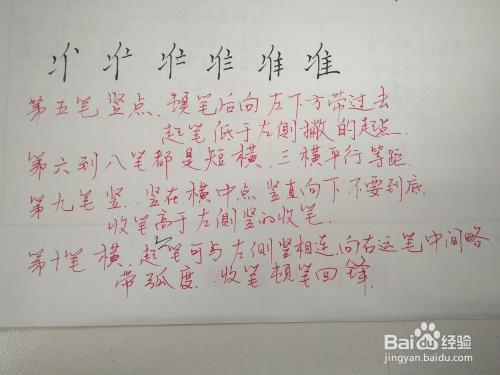 准
第五笔 竖点 顿笔后向左下方带过去
起笔低于左侧撇的起点
第六到八笔都是短横. 三横平行等距.
第九笔 竖. 竖在横中点 竖直向下 不要到底
收笔高于左侧竖的收笔.
第十笔 横. 起笔可与左侧竖相连. 向右运笔中间略
带弧度. 收笔顿笔回锋
Baidu经验
jingyan.baidu.com